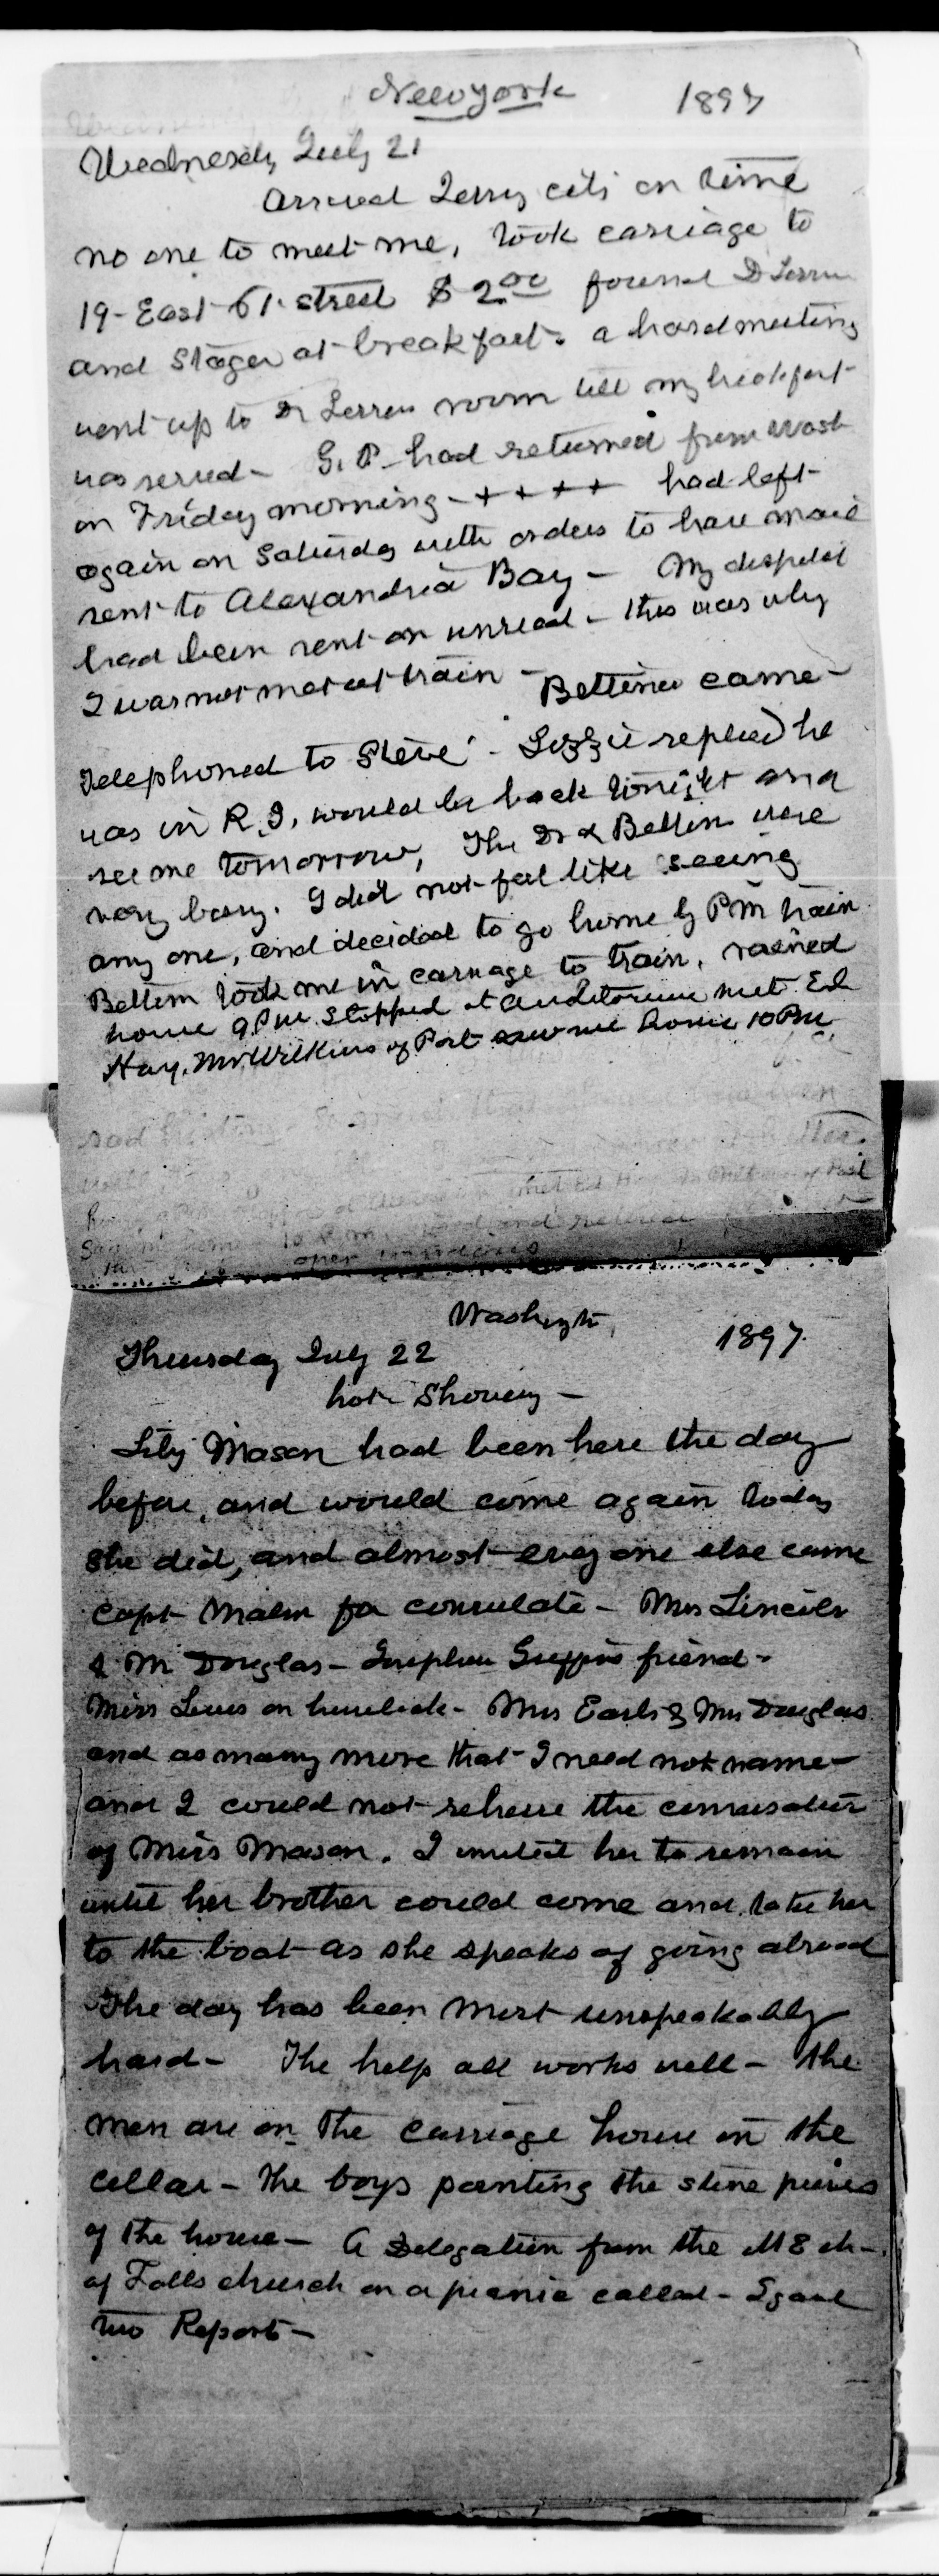 New York 1897
Wednesday July 21
Arrived Jersey city on time
no one to meet me, took carriage to
19 - East 61. street $2.00 found D Lerrow
and Stager at breakfast. a hard meeting
went up to Dr Lerrows room till my breakfast
was served - G. P. had returned from Wash
on Friday morning - + + + + had left
again on Saturday with orders to have mail
sent to Alexandria Bay - My dispatch
had been sent on unread - this was why
I was not met at train - Bettina came -
Telephoned to Steve - Lizzie replied he
was in R. I, would be back tonight and
see me tomorrow, The Dr & Bettina were
very busy. I did not feel like seeing
any one, and decided to go home by PM train
Bettina took me in carriage to train, rained
home 9 P M. Stopped at Auditorium met Ed
Hay. Mr Wilkins of Post saw me home 10 PM
open windows
Washington, 1897.
Thursday July 22
hot Showery -
Lily Mason had been here the day
before, and would come again today
she did, and almost every one else came
Capt for consulate - Mrs Lincoln
& M Douglas - friend -
Miss on - Mrs Earls & Mrs Douglas
and as many more that I need not name -
and I could not relieve the conversation
of Miss Mason. I invited her to remain
until her brother could come and take her
to the boat as she speaks of going abroad
The day has been most unspeakably
hard - The help all works well - the
men are on the carriage house in the
cellar - the boys painting the stone pieces
of the house - A Delegation from the M E ch -
of Falls church on a picnic called - I gave
two Reports -